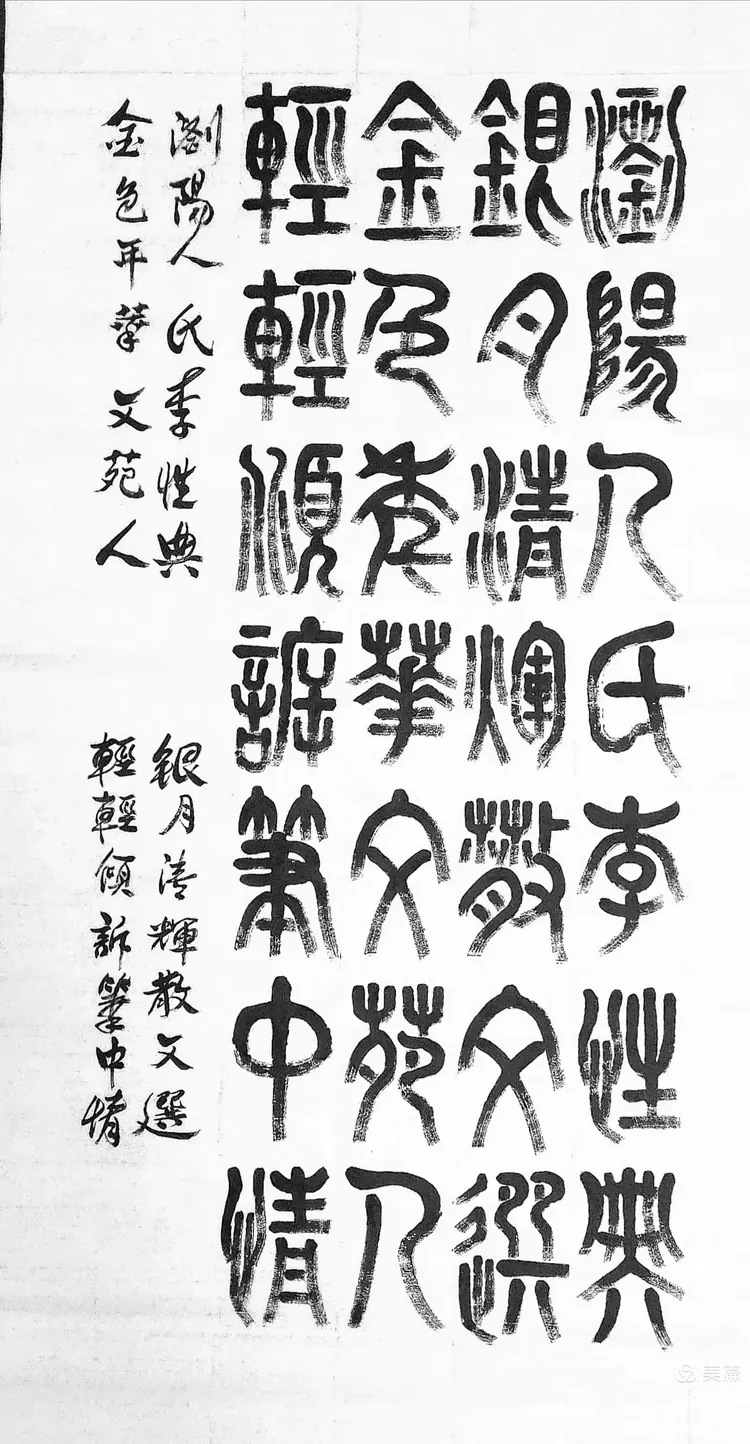 瀏陽人氏李性典
銀月清煇散文選
金色年華文苑人
輕輕傾訴筆中情
浏陽人氏李性典
銀月清輝散文選
金色年華文苑人
輕輕傾訴筆中情
美篇